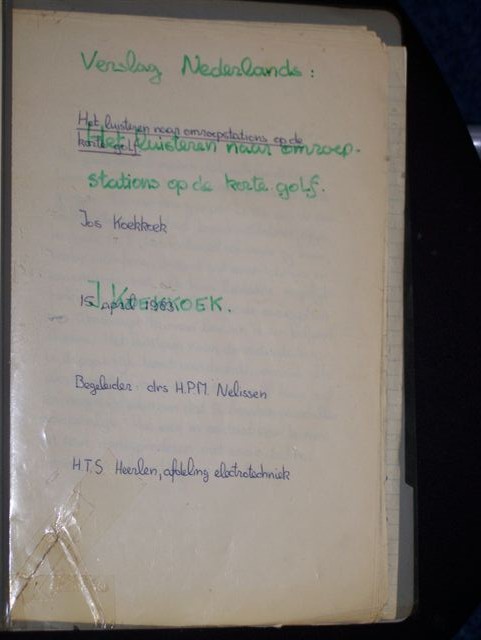 Verslag Nederlands:
Het luisteren naar omroepstations op de
korte golf
Het luisteren naar omroep-
stations op de korte golf.
Jos Koekkoek
J. KOEKKOEK.
15 april 1983
Begeleider: drs H.P.M. Nelissen
H.T.S. Heerlen, afdeling electrotechniek